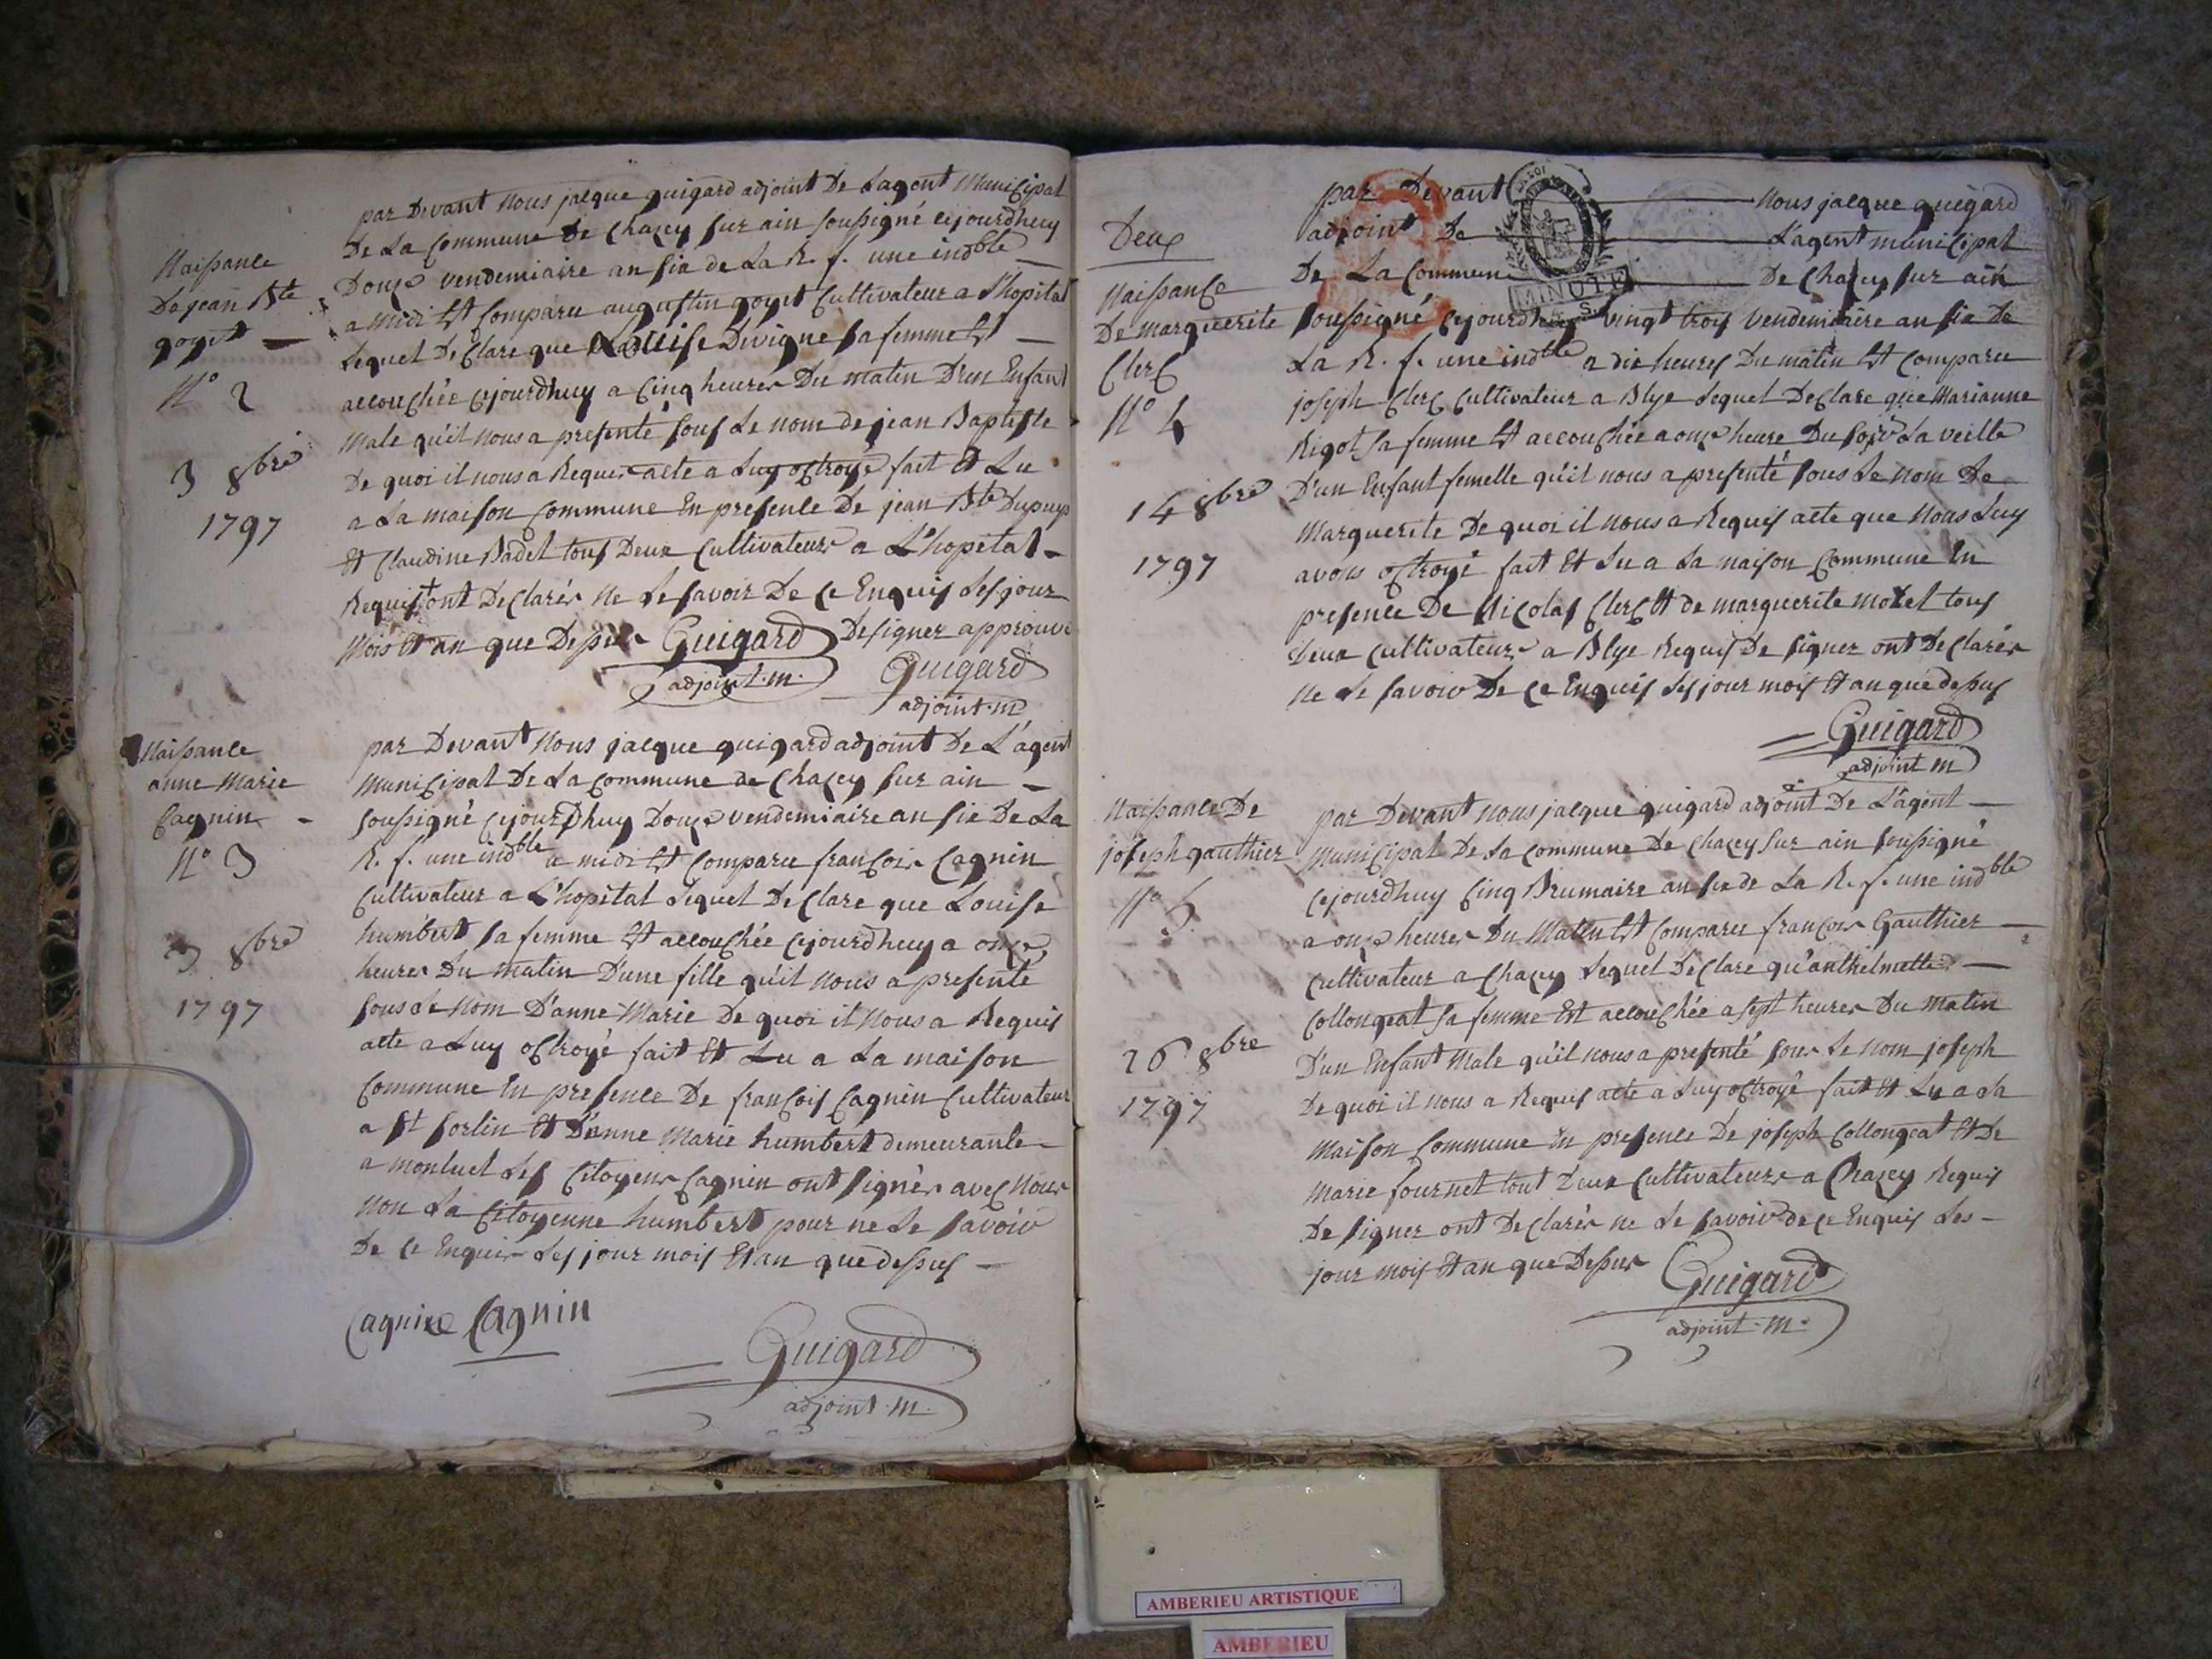 Naissance
De jean Bte
goyet —
N° 2
3 8bre
1797
par Devant Nous jacque guigard adjoint De Lagent Municipal
De La Commune De Chazey sur ain soussigné cejourdhuy
Douze vendemiaire an six de La R. f. une indble —
a midi Est Comparu augustin goyet Cultivateur a L'hopital
Lequel DeClare que Louise Devigne sa femme Est —
accouchée cejourdhuy a Cinq heures Du matin D'un Enfant
Male qu'il nous a presenté sous Le nom de jean Baptiste
De quoi il nous a Requis acte a Luy octroyé fait Et Lu
a La maison Commune En presence De jean Bte Dupuys
Et Claudine Badel tous Deux Cultivateurs a L'hopital —
Requis ont DeClarés Ne Le savoir De Ce Enquis Les jour
Mois Et an que Dessus Guigard Designer approuvé
adjoint. m. Guigard
adjoint m
Naissance
anne Marie
Cagnin —
N° 3
3 8bre
1797
par Devant Nous jacque guigard adjoint De L'agent
Municipal De La Commune de Chazey sur ain —
soussigné cejourdhuy Douze vendemiaire an six De La
R. f. une indble a midi Est Comparu françois Cagnin
Cultivateur a L'hopital Lequel DeClare que Louise
humbert sa femme Est accouchée cejourdhuy a onze
heures Du matin D'une fille qu'il nous a presenté
sous Le nom D'anne Marie De quoi il Nous a Requis
acte a Luy octroyé fait Et Lu a La maison
Commune En presence De françois Cagnin Cultivateur
a st sorlin Et D'anne Marie humbert demeurante —
a montluel Les Citoyens Cagnin ont signés avec Nous
Non La Citoyenne humbert pour ne Le savoir
De Ce Enquis Les jour mois Et an que dessus —
Cagnin Cagnin
Guigard
adjoint. m.
Deux
Naissance
De marguerite
Clerc
N° 4
14 8bre
1797
par Devant Nous jacque guigard
adjoint De L'agent municipal
De La Commune De Chazey sur ain
MINUTE
soussigné Cejourdhuy vingt trois Vendemiaire an six De
La R. f. une indble a dix heures Du matin Est Comparu
joseph Clerc Cultivateur a Blye Lequel DeClare que Marianne
Rigot sa femme Est accouchée a onze heure Du soir La veille
D'un Enfant femelle qu'il nous a presenté sous Le Nom De
Marguerite De quoi il nous a Requis acte que Nous Luy
avons octroyé fait Et Lu a La maison Commune En
presence De Nicolas Clerc Et de marguerite motel tous
Deux Cultivateurs a Blye Requis De signer ont DeClarés
Ne Le savoir De Ce Enquis Les jour mois Et an que dessus
Guigard
adjoint m
Naissance De
joseph gauthier
N° 5
26 8bre
1797
par Devant nous jacque guigard adjoint De L'agent —
Municipal De La Commune De Chazey sur ain soussigné
Cejourdhuy Cinq Brumaire an six de La R. f. une indble
a onze heures Du Matin Est Comparu françois Gauthier —
Cultivateur a Chazey Lequel DeClare qu'anthelmette —
Collongeat sa femme Est accouchée a sept heures Du Matin
D'un Enfant Male qu'il nous a presenté sous Le nom joseph
De quoi il nous a Requis acte a Luy octroyé fait Et Lu a La
Maison Commune En presence De joseph Collongeat Et De
Marie fournet tout Deux Cultivateurs a Chazey Requis
De signer ont DeClarés ne Le savoir de Ce Enquis Les —
jour mois Et an que Dessus Guigard
adjoint. m.
AMBERIEU ARTISTIQUE
AMBERIEU